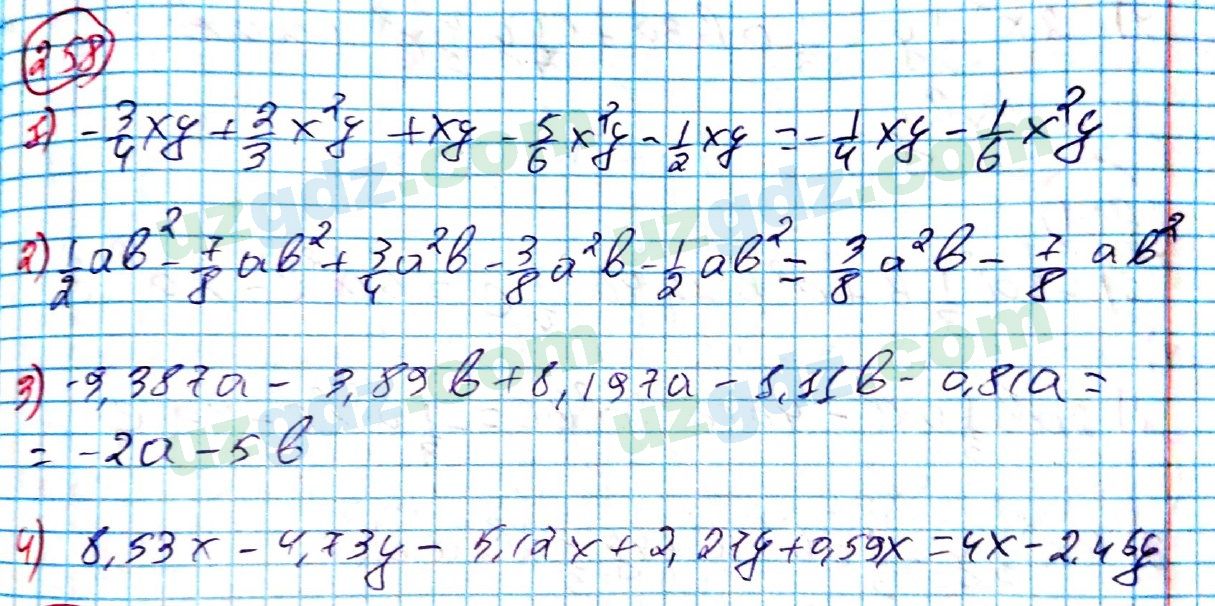 258
1) -3/4 xy + 2/3 x²y + xy - 5/6 x²y - 1/2 xy = -1/4 xy - 1/6 x²y
2) 1/2 ab² - 7/8 ab² + 3/4 a²b - 3/8 a²b - 1/2 ab² = 3/8 a²b - 7/8 ab²
3) -9,387a - 3,89b + 8,197a - 1,11b - 0,81a =
= -2a - 5b
4) 8,53x - 4,73y - 5,12x + 2,27y + 0,59x = 4x - 2,45y
uzgdz.com
uzgdz.com
uzgdz.com
uzgdz.com